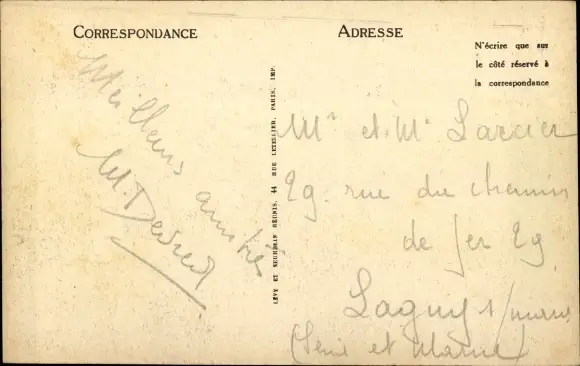 CORRESPONDANCE
ADRESSE
N'écrire que sur
le côté réservé à
la correspondance
Meilleurs amitiés
LÉVY ET NEURDEIN RÉUNIS, 44 RUE LETELLIER, PARIS, IMP.
Mr et Me
29. rue du chemin
de fer 29
Lagny s/ marne
(Seine et Marne)